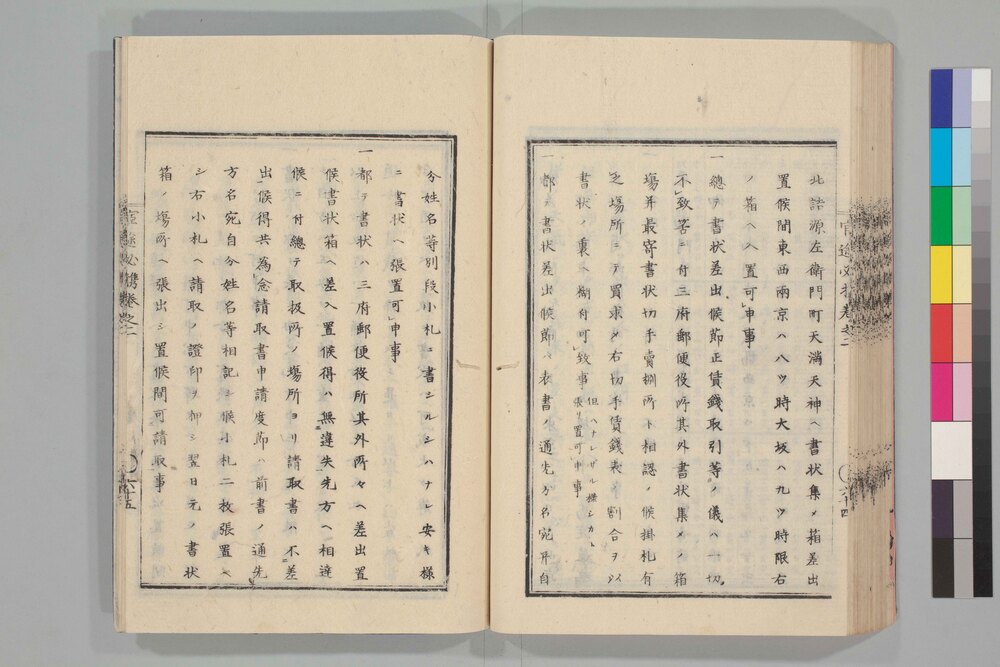 北詰源左衛門町天満天神ヘ書状集メ箱差出
置候間東西兩京ハ八ツ時大坂ハ九ツ時限右
ノ箱ヘ入置可申事
一總テ書状差出候節正賃錢取引等ノ儀ハ一切
不致筈ニ付三府郵便役所其外書状集メノ箱
場并最寄書状切手賣捌所ト相認ノ候掛札有
之場所ニテ買求メ右切手賃錢表ノ割合ヲ以
書状ノ裏ヘ糊付可致事
但ヘナレザル樣シカト
張リ置可申事
一都テ書状差出候節ハ表書ノ通先方名宛并自
分姓名等別段小札ニ書シルシハナレ安キ樣
ニ書状ヘ張置可申事
一都テ書状ハ三府郵便役所其外所々ヘ差出置
候書状箱ヘ差入置候得ハ無違失先方ヘ相達
候ニ付總テ取扱所ノ場所ヨリ請取書ハ不差
出候得共為念請取書申請度節ハ前書ノ通先
方名宛自分姓名等相記シ候小札二枚張置ヘ
シ右小札ヘ請取ノ證印ヲ押シ翌日元ノ書状
箱ノ場所ヘ張出シ置候間可請取事
官途必携巻之二
六十四
官途必携巻之二
六十五